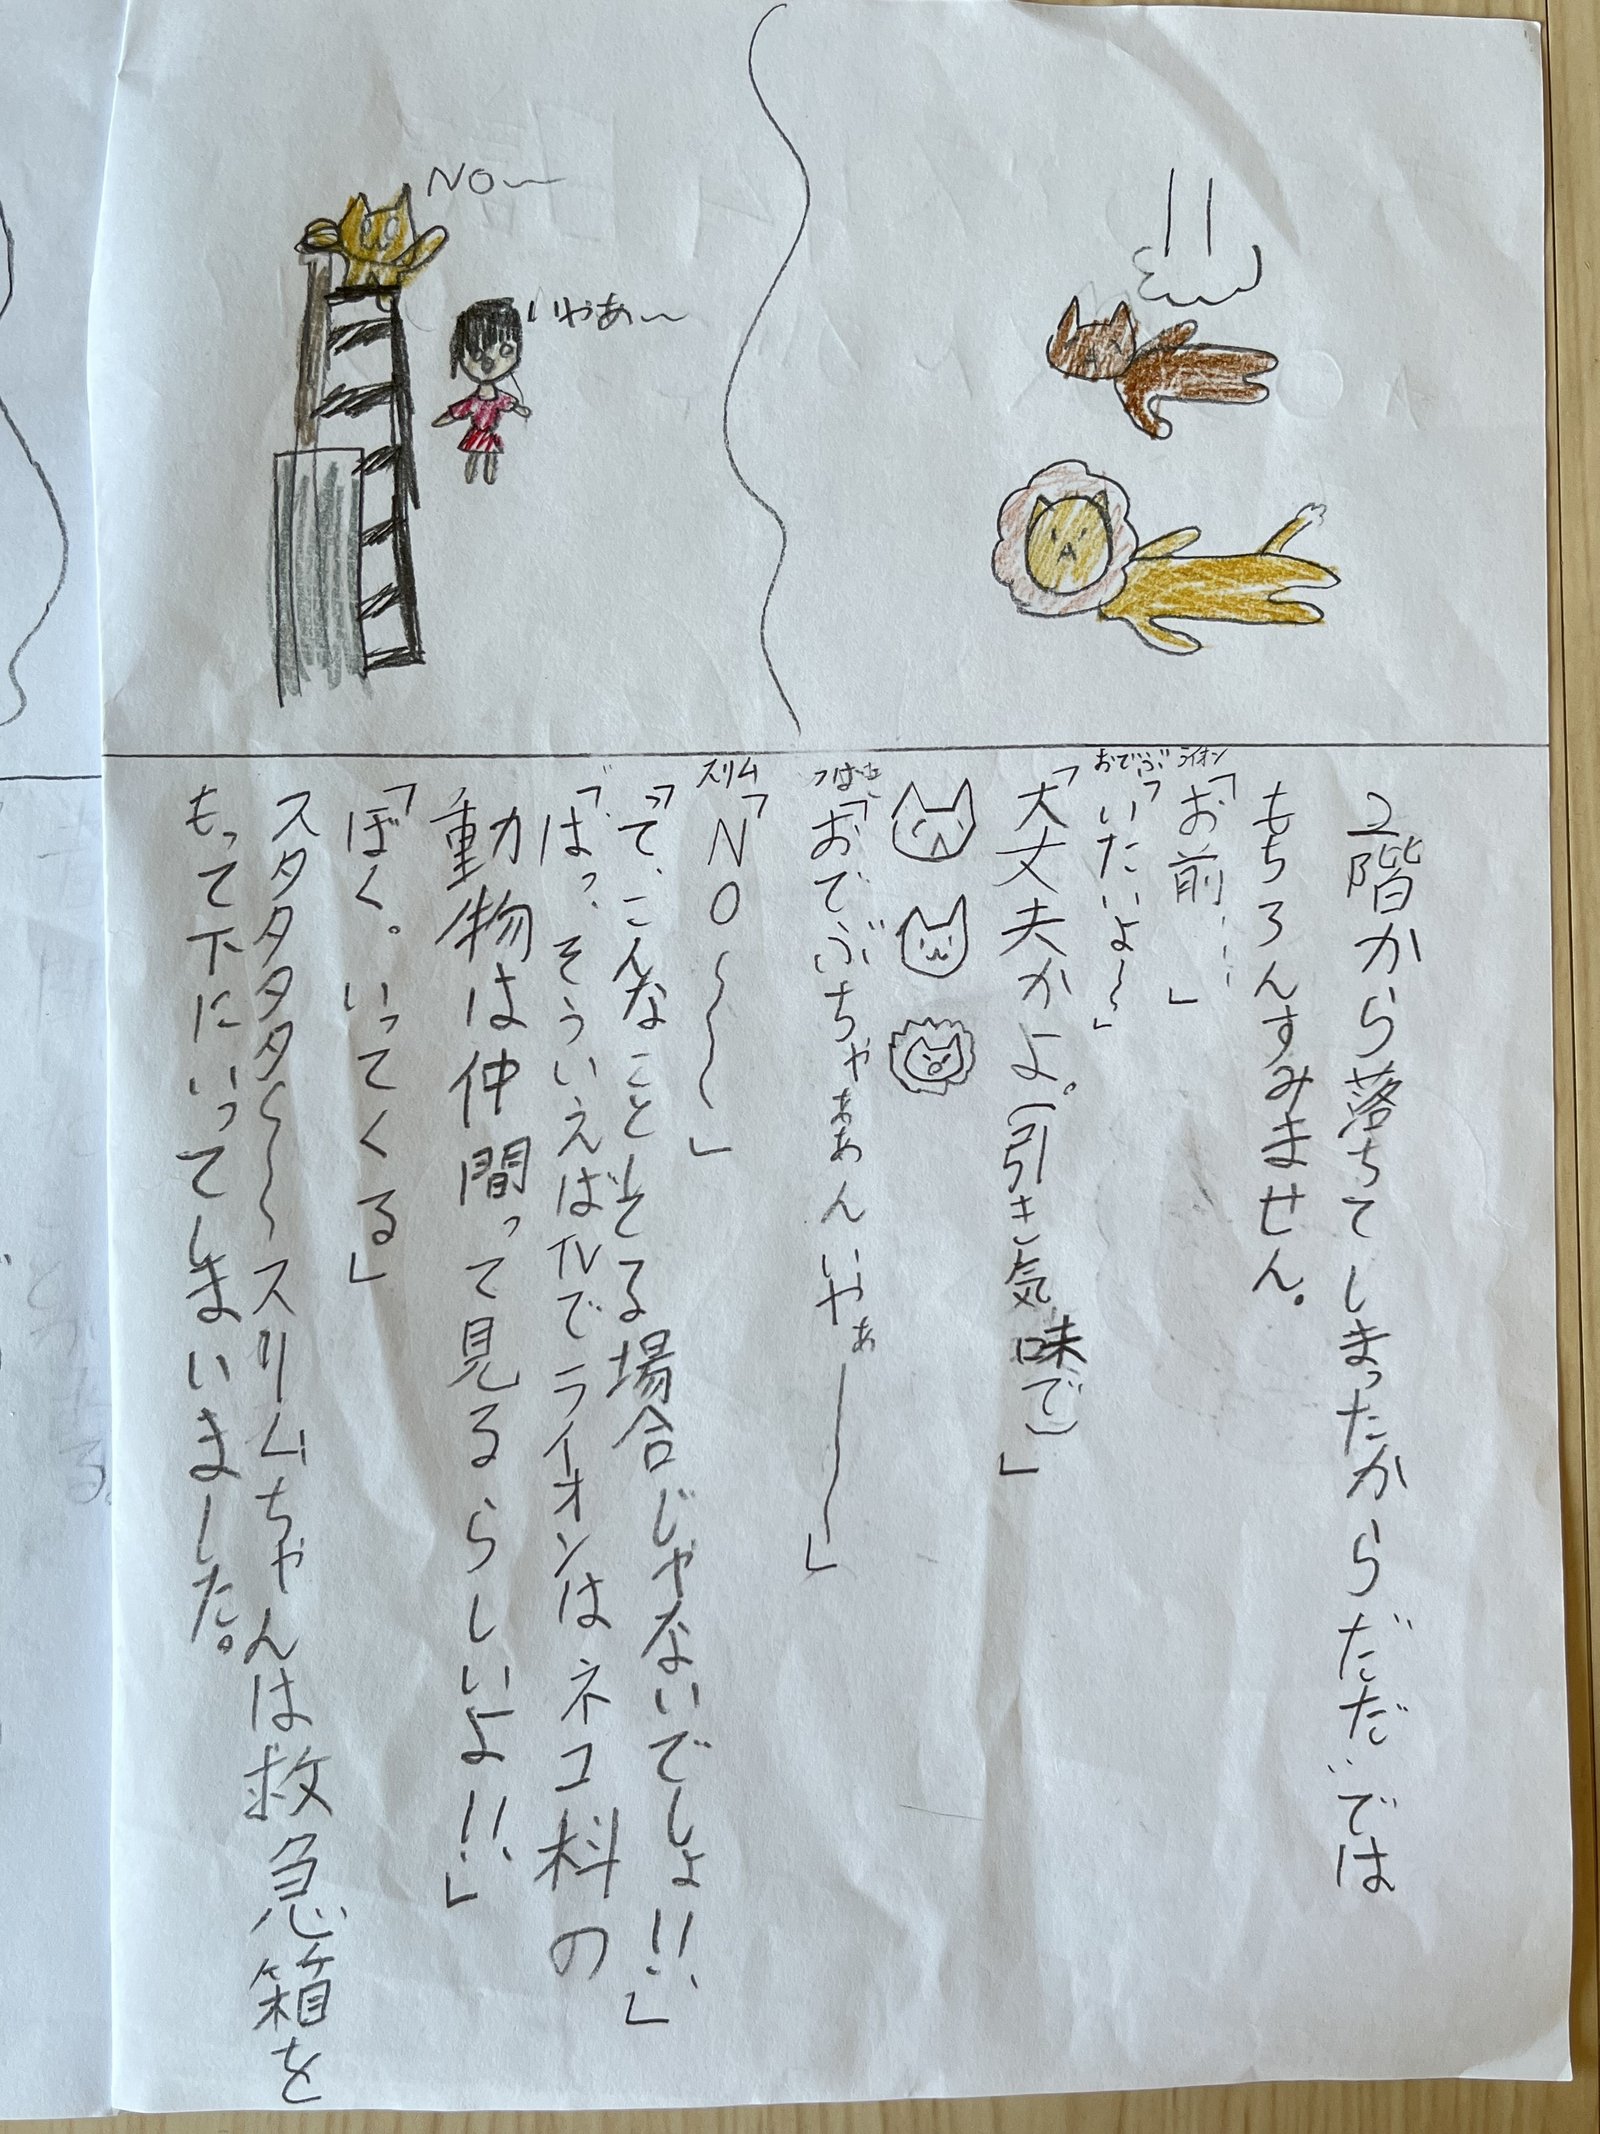 NO〜
いやあ〜
2階から落ちてしまったからだだでは
もちろんすみません。
ライオン
「お前……」
おでぶ
「いたいよ〜」
「大丈夫かよ。(引き気味で)」
つばき
「おでぶちゃぁぁんいやぁ――〜」
スリム
「NO〜〜〜」
「て、こんなことしてる場合じゃないでしょ!!」
「ばっ、そういえばTVでライオンはネコ科の
動物は仲間って見るらしいよ!!」
「ぼく。いってくる」
スタタタタ〜〜スリムちゃんは救急箱を
もって下にいってしまいました。